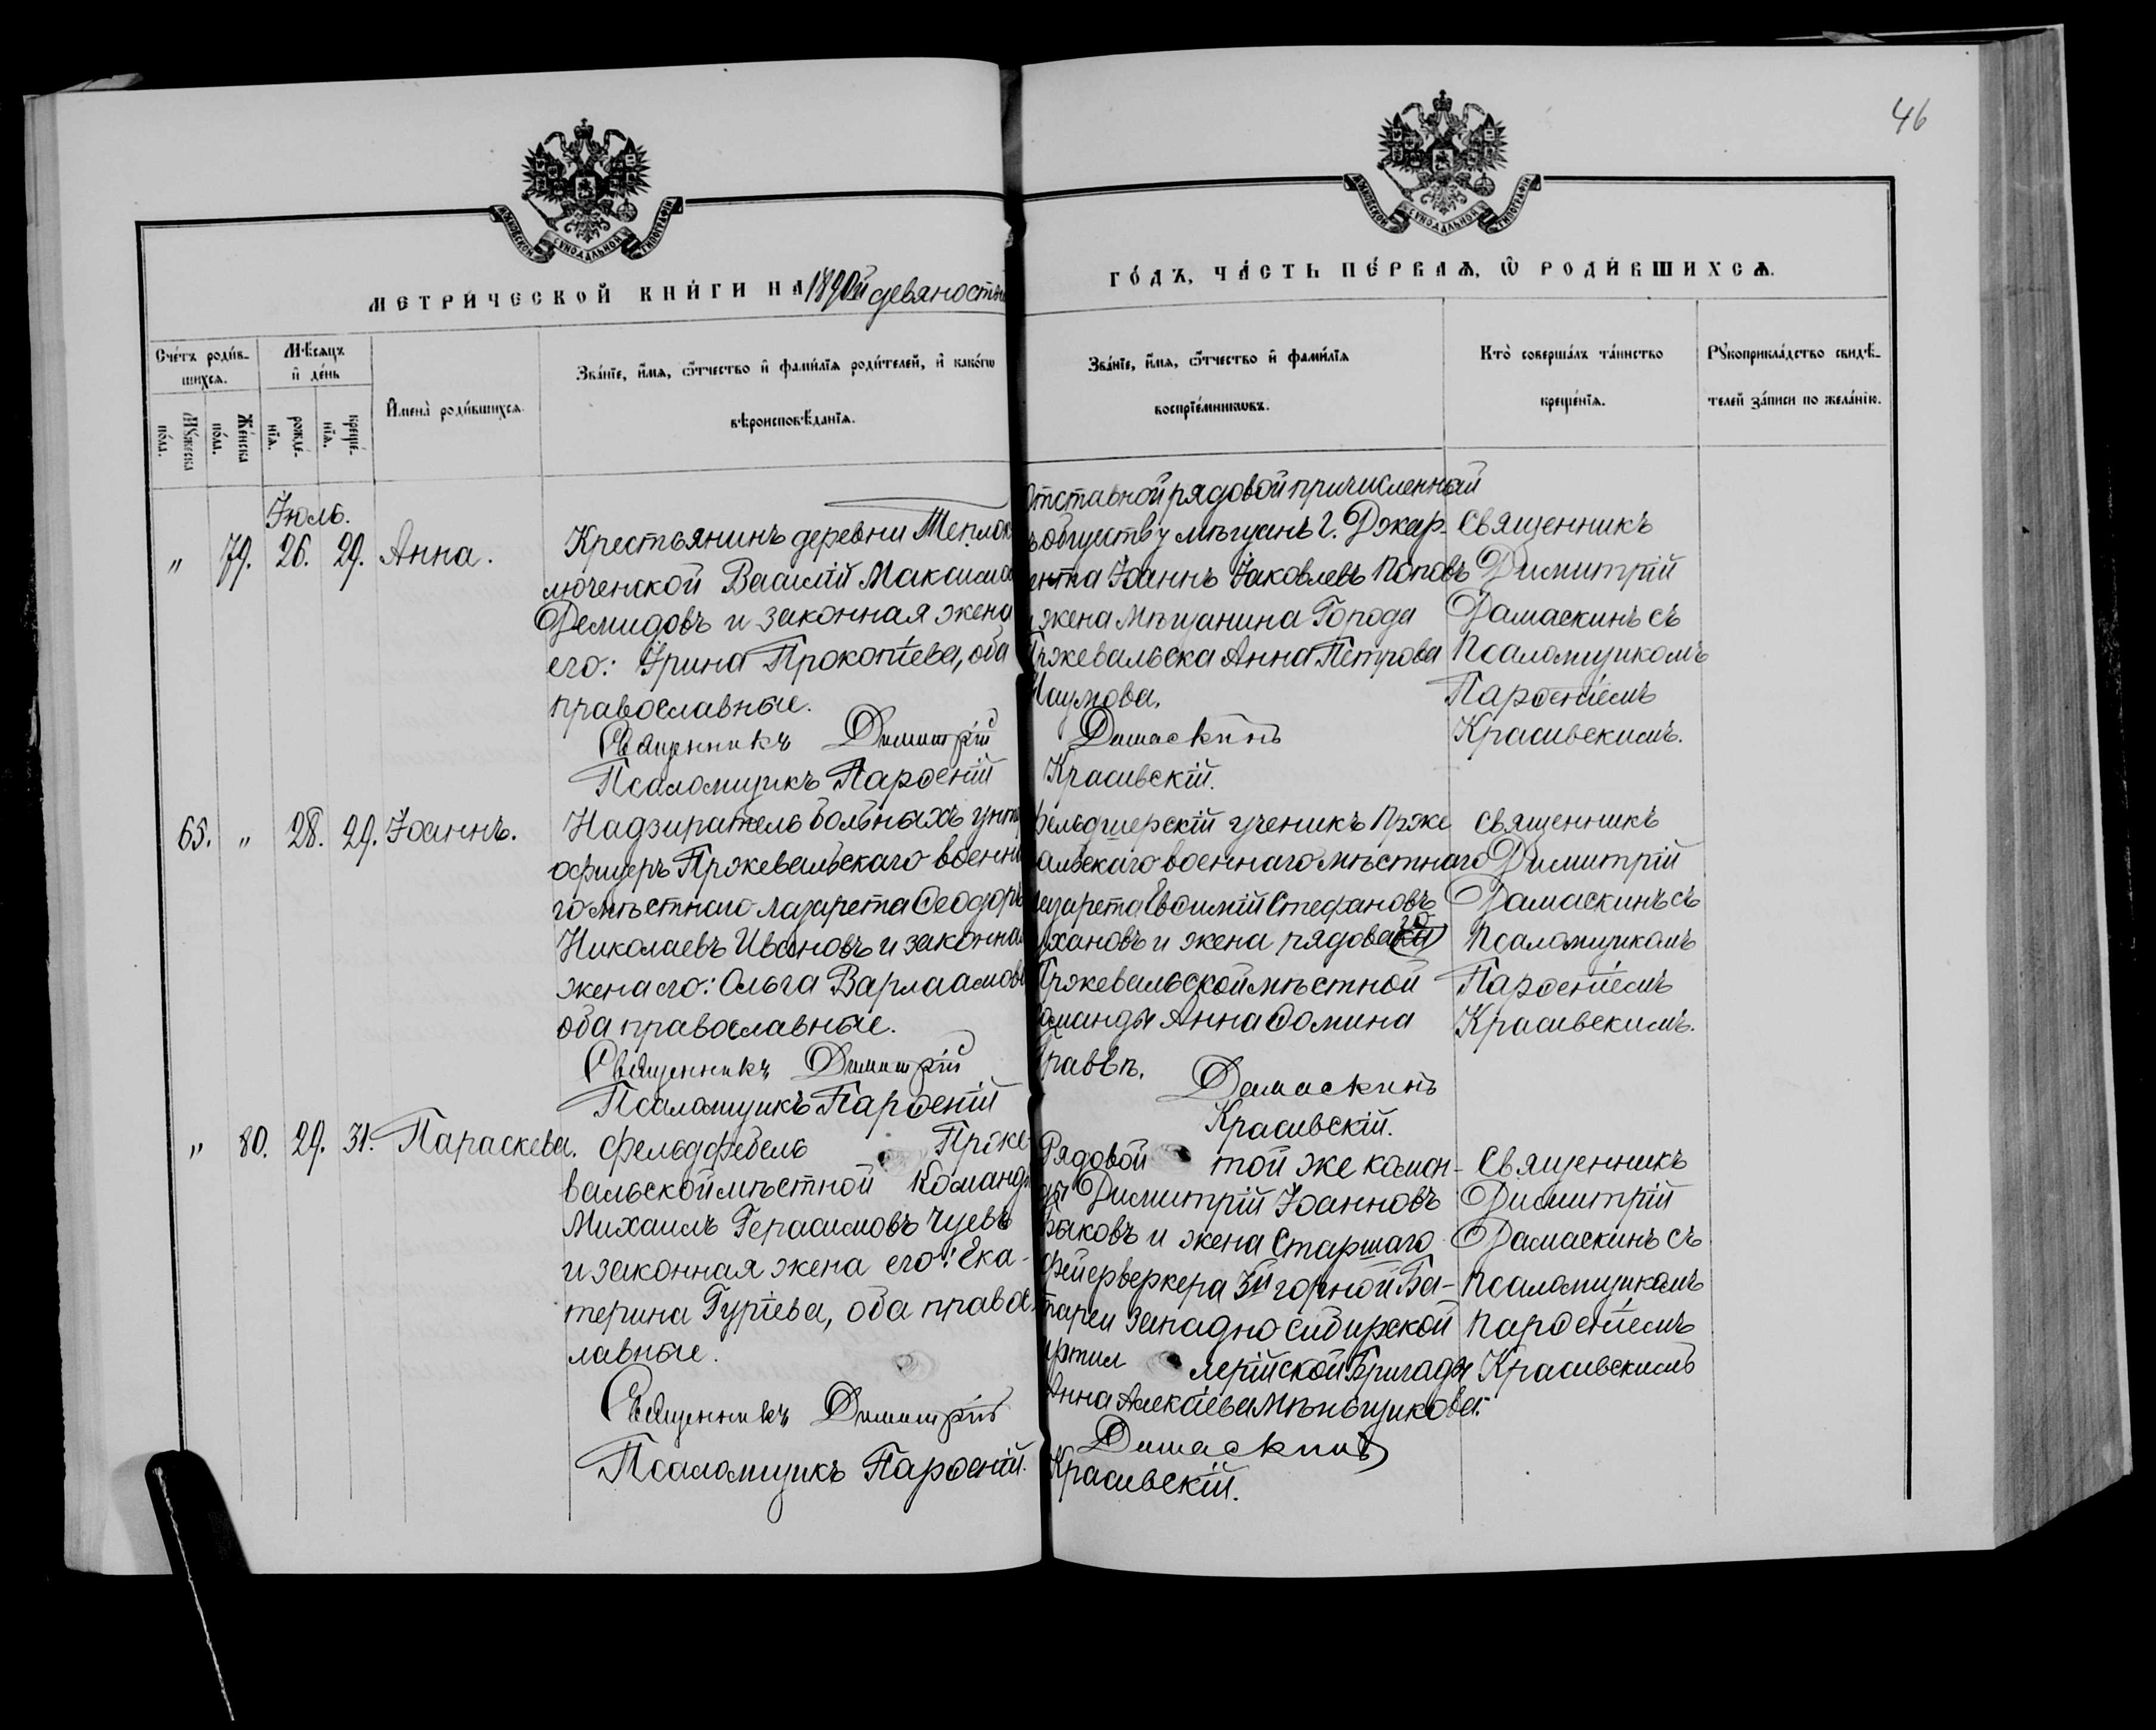 46
МОСКОВСКОЙ СѴНОДАЛЬНОЙ ТИПОГРАФІИ
МОСКОВСКОЙ СѴНОДАЛЬНОЙ ТИПОГРАФІИ
МЕТРИ́ЧЕСКОЙ КНИ́ГИ НА 1890й девяносты
ГО́ДЪ, ЧА́СТЬ ПЕ́РВАѦ, Ѡ РОДИ́ВШИХСѦ.
Сче́тъ роди́в-
шихсѧ.
Мѣ́сѧцъ
и҆ де́нь
Мꙋ́жеска
по́ла.
Же́нска
по́ла.
рожде́-
нїѧ.
креще́-
нїѧ.
И҆мена̀ роди́вшихсѧ.
Зва́нїе, и҆́мѧ, ѻ҆́тчество и҆ фами́лїѧ роди́телей, и҆ како́гѡ
вѣроисповѣ́данїѧ.
Зва́нїе, и҆́мѧ, ѻ҆́тчество и҆ фами́лїѧ
воспрїе́мникѡвъ.
Кто̀ соверша́лъ та́инство
креще́нїѧ.
Рꙋкоприкла́дство свидѣ́-
телей за́писи по жела́нїю.
Іюль.
" 79. 26. 29. Анна.
Крестьянинъ деревни Теплок
люченской Василій Максимо
Демидовъ и законная жена
его: Ирина Прокопіева, оба
православные.
Священникъ Димитрій
Псаломщикъ Парѳеній
Отставной рядовой причисленный
ъ обществу мѣщанъ г. Джар-
ента Іоаннъ Іаковлевъ Поповъ
и жена мѣщанина Города
Пржевальска Анна Петрова
Наумова.
Дамаскинъ
Красивскій.
Священникъ
Димитрій
Дамаскинъ съ
Псаломщикомъ
Парѳеніемъ
Красивскимъ.
65. " 28. 29. Іоаннъ.
Надзиратель больныхъ унт
офицеръ Пржевальскаго военна
го мѣстнаго лазарета Ѳеодоръ
Николаевъ Ивановъ и законная
жена его: Ольга Варлаамова
оба православные.
Священникъ Димитрій
Псаломщикъ Парѳеній
фельдшерскій ученикъ Прже
альскаго военнаго мѣстнаго
лазарета Евѳимій Стефановъ
хановъ и жена рядоваго
Пржевальской мѣстной
оманды Анна Ѳомина
Дамаскинъ
Красивскій.
Священникъ
Димитрій
Дамаскинъ съ
Псаломщикомъ
Парѳеніемъ
Красивскимъ.
" 80. 29. 31. Параскева.
Фельдфебель Прже
вальской мѣстной Команды
Михаилъ Герасимовъ Чуевъ
и законная жена его: Ека-
терина Гуріева, оба правос
лавные.
Священникъ Димитрій
Псаломщикъ Парѳеній.
Рядовой той же коман-
ды Димитрій Іоанновъ
Быковъ и жена Старшаго
фейерверкера горной Ба-
тареи Западно Сибирской
артил лерійской Бригады
Анна Алексіева Мѣньщикова.
Дамаскинъ
Красивскій.
Священникъ
Димитрій
Дамаскинъ съ
Псаломщикомъ
Парѳеніемъ
Красивскимъ